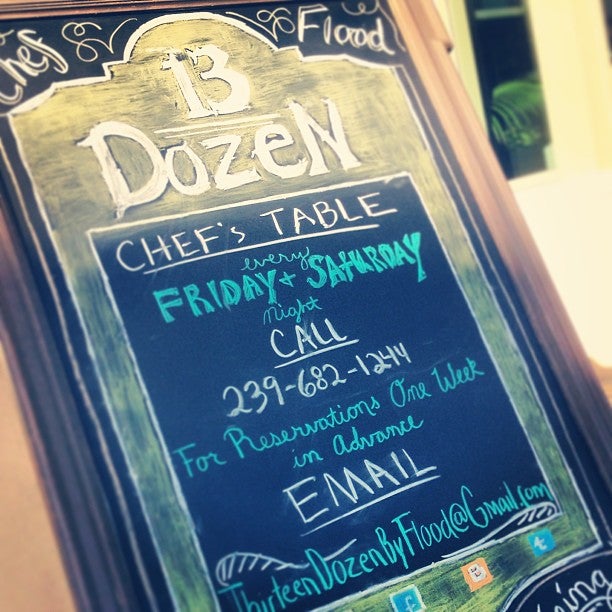 Chef Flood
13
DozeN
CHEF's TABLE
every
FRIDAY + SATURDAY
night
CALL
239-682-1244
For Reservations One Week
in advance
EMAIL
ThirteenDozenByFlood@Gmail.com
f B t